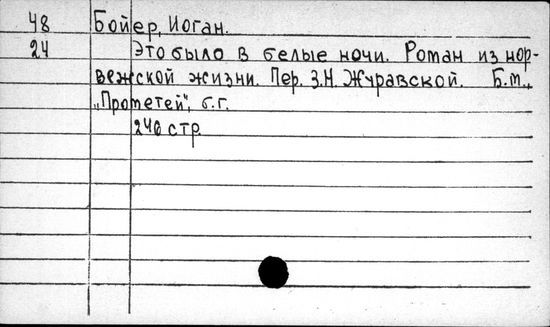 48 Бойер, Иоган.
24 Это было в белые ночи. Роман из нор-
вежской жизни. Пер. З.Н. Журавской. Б.м.,
„Прометей", б.г.
240 стр.